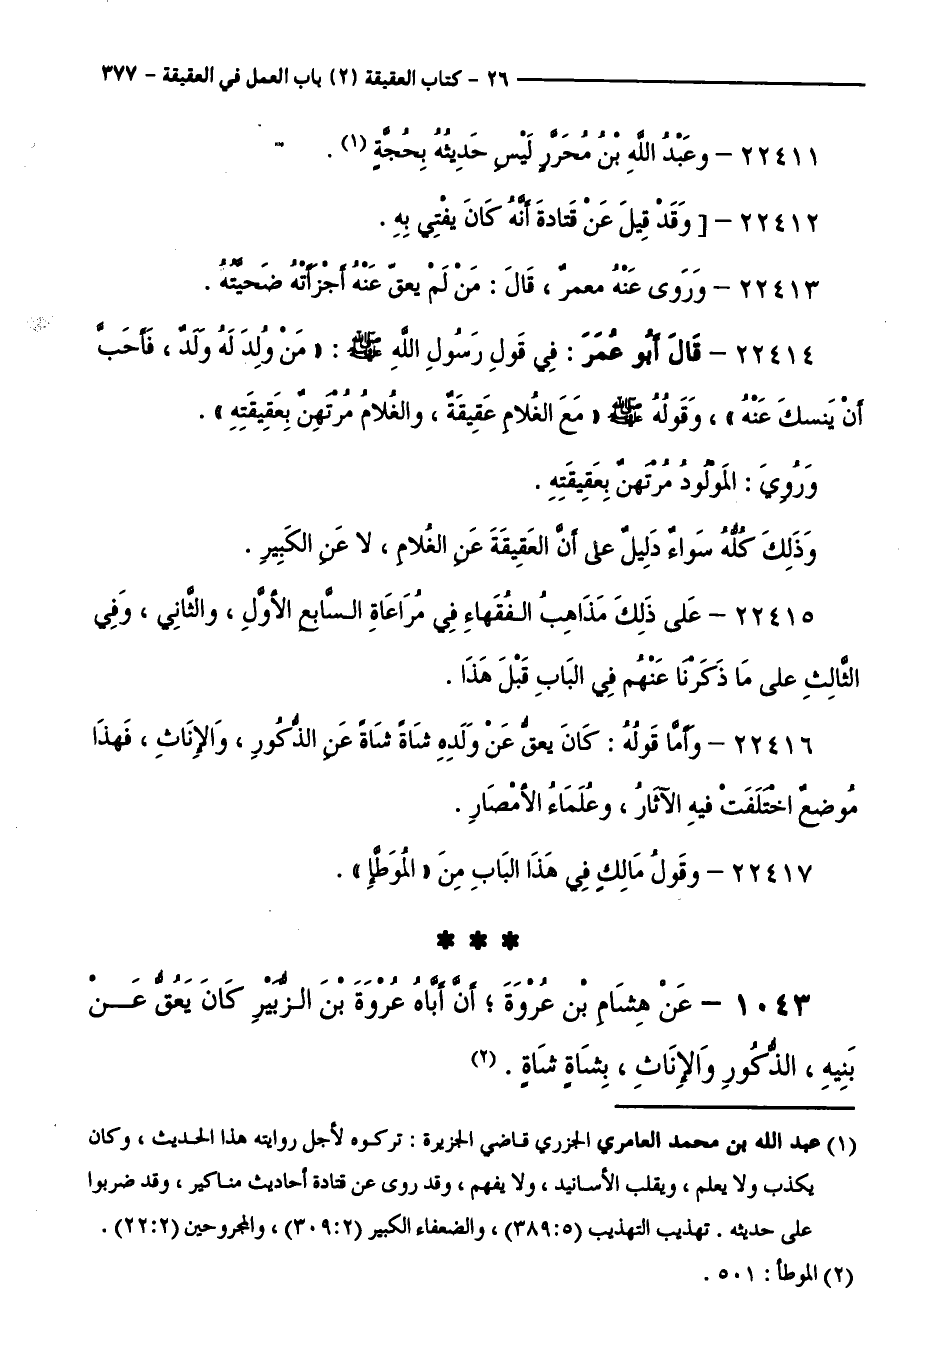 ٢٦ - كتاب العقيقة (٢) باب العمل في العقيقة - ٣٧٧
٢٢٤١١ - وعَبْدُ اللَّهِ بْنُ مُحَرَّرٍ لَيْسِ حَدِيثُهُ بِحُجَّةٍ (١) .
٢٢٤١٢ - [ وَقَدْ قِيلَ عَنْ قَتادةَ أَنَّهُ كَانَ يفْتِي بِهِ .
٢٢٤١٣ - وَرَوَى عَنْهُ معمرٌ ، قَالَ : مَنْ لَمْ يعقّ عَنْهُ أَجْزَأَتْهُ ضَحيَّتُهُ .
٢٢٤١٤ - قَالَ أَبُو عُمَرَ : فِي قَولِ رَسُولِ اللَّهِ ﷺ : « مَنْ وُلِدَ لَهُ وَلَدٌ ، فَأَحَبَّ
أَنْ يَنسكَ عَنْهُ » ، وَقَولُهُ ﷺ « مَعَ الغُلامِ عَقِيقَةٌ ، والغُلامُ مُرْتَهِنٌ بِعَقِيقَتِهِ » .
وَرُوِيَ : المَوْلُودُ مُرْتَهنٌ بِعَقِيقَتِهِ .
وَذَلِكَ كُلُّهُ سَواءٌ دَلِيلٌ على أَنَّ العَقِيقَةَ عَنِ الغُلامِ ، لا عَنِ الكَبِيرِ .
٢٢٤١٥ - عَلَى ذَلِكَ مَذَاهِبُ الفُقَهاءِ فِي مُرَاعَاةِ السَّابعِ الأوَّلِ ، والثَّانِي ، وَفِي
الثَّالِثِ على مَا ذَكَرْنَا عَنْهُم فِي البَابِ قَبْلَ هَذَا .
٢٢٤١٦ - وَأَمَّا قَولُهُ : كَانَ يعقُّ عَنْ وَلَدِهِ شاةً شاةً عَنِ الذُّكُورِ ، وَالإِنَاثِ ، فَهذَا
مُوضعٌ اخْتَلَفَتْ فيهِ الآثَارُ ، وعُلَمَاءُ الأَمْصَارِ .
٢٢٤١٧ - وقَولُ مَالِكٍ فِي هَذَا البَابِ مِنَ « المُوَطَّإِ » .
* * *
١٠٤٣ - عَنْ هِشَامِ بْنِ عُرْوَةَ ؛ أَنَّ أَبَاهُ عُرْوَةَ بْنَ الزُّبَيْرِ كَانَ يَعُقُّ عَنْ
بَنِيهِ ، الذُّكُورِ وَالإِنَاثِ ، بِشَاةٍ شَاةٍ . (٢)
(١) عبد الله بن محمد العامري الجزري قاضي الجزيرة : تركوه لأجل روايته هذا الحديث ، وكان
يكذب ولا يعلم ، ويقلب الأسانيد ، ولا يفهم ، وقد روى عن قتادة أحاديث مناكير ، وقد ضربوا
على حديثه . تهذيب التهذيب (٣٨٩:٥) ، والضعفاء الكبير (٣٠٩:٢) ، والمجروحين (٢٢:٢) .
(٢) الموطأ : ٥٠١ .